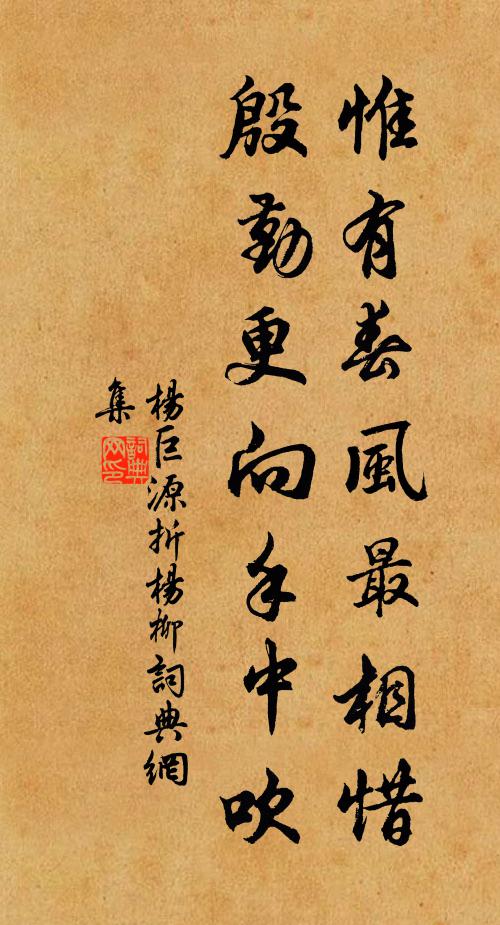 惟有春風最相惜
殷勤更向手中吹
楊巨源折楊柳詞典網
集
詞典网印